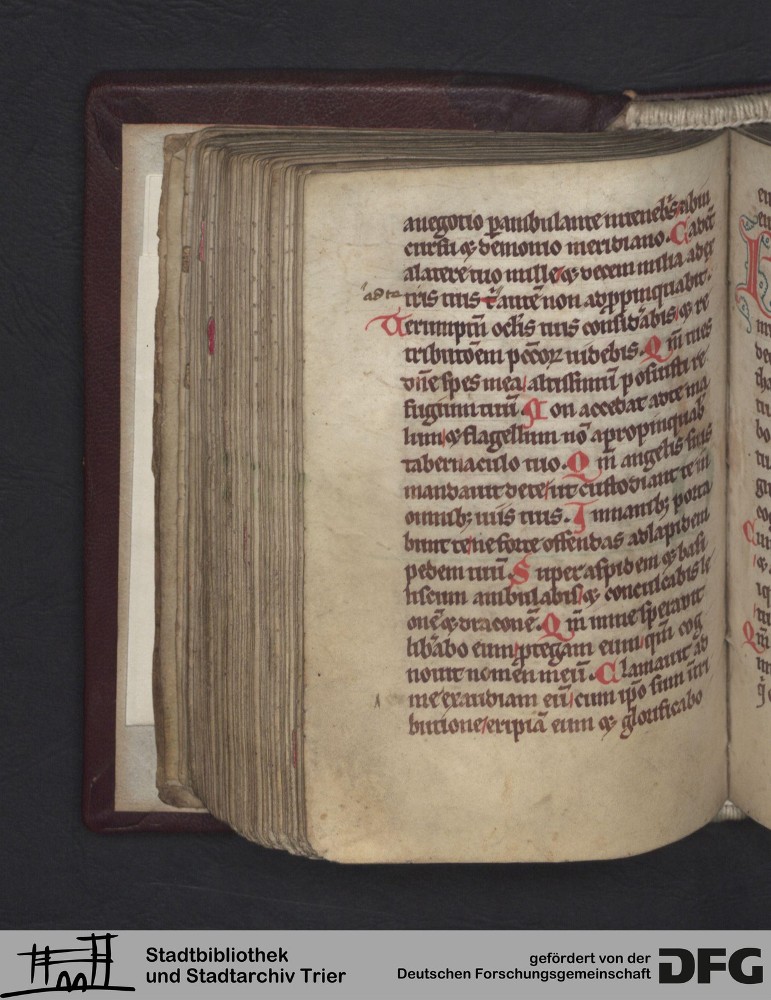 anegotio ꝑambulante intenebris abin
cursu ⁊ demonio meridiano. Cadent
alatere tuo mille ⁊ decem milia adex
tris tuis autē non appropinquabit.
ad te
Verumptn̄ oculis tuis considabis ⁊ re
tributōem pccōꝝ uidebis. Qm̄ tu es
dn̄e spes mea altissimum posuisti re
fugium tuū Non accedat adte ma
lum ⁊ flagellum nō apropinquab
tabernaculo tuo. Qm̄ angelis suis
mandauit dete ut custodiant te in
omnibꝫ uiis tuis. In manibꝫ porta
bunt te ne forte offendas adlapidem
pedem tuū Super aspidem ⁊ basi
liscum ambulabis ⁊ conculcabis le
onē ⁊ draconē. Qm̄ in me sperauit
libabo eum ptegam eum qm̄ cog
nouit nomen meū. Clamauit ad
me exaudiam eū cum ipō sum in tri
bulione eripiā eum ⁊ glorificabo
Stadtbibliothek
und Stadtarchiv Trier
gefördert von der
Deutschen Forschungsgemeinschaft
DFG